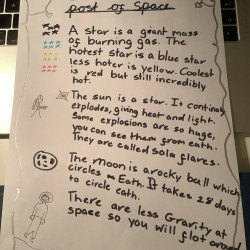 post of Space
A star is a giant mass
of burning gas. The
hotest star is a blue star
less hoter is yellow. Coolest
is red but still incredibly
hot.
The sun is a star. It continuly
explodes, giving heat and light.
Some explosions are so huge,
you can see them grom eath.
They are called sola flares.
The moon is a rocky ball which
circles Eath. It takes 28 days
to circle eath.
There are less Gravity at
space so you will float around